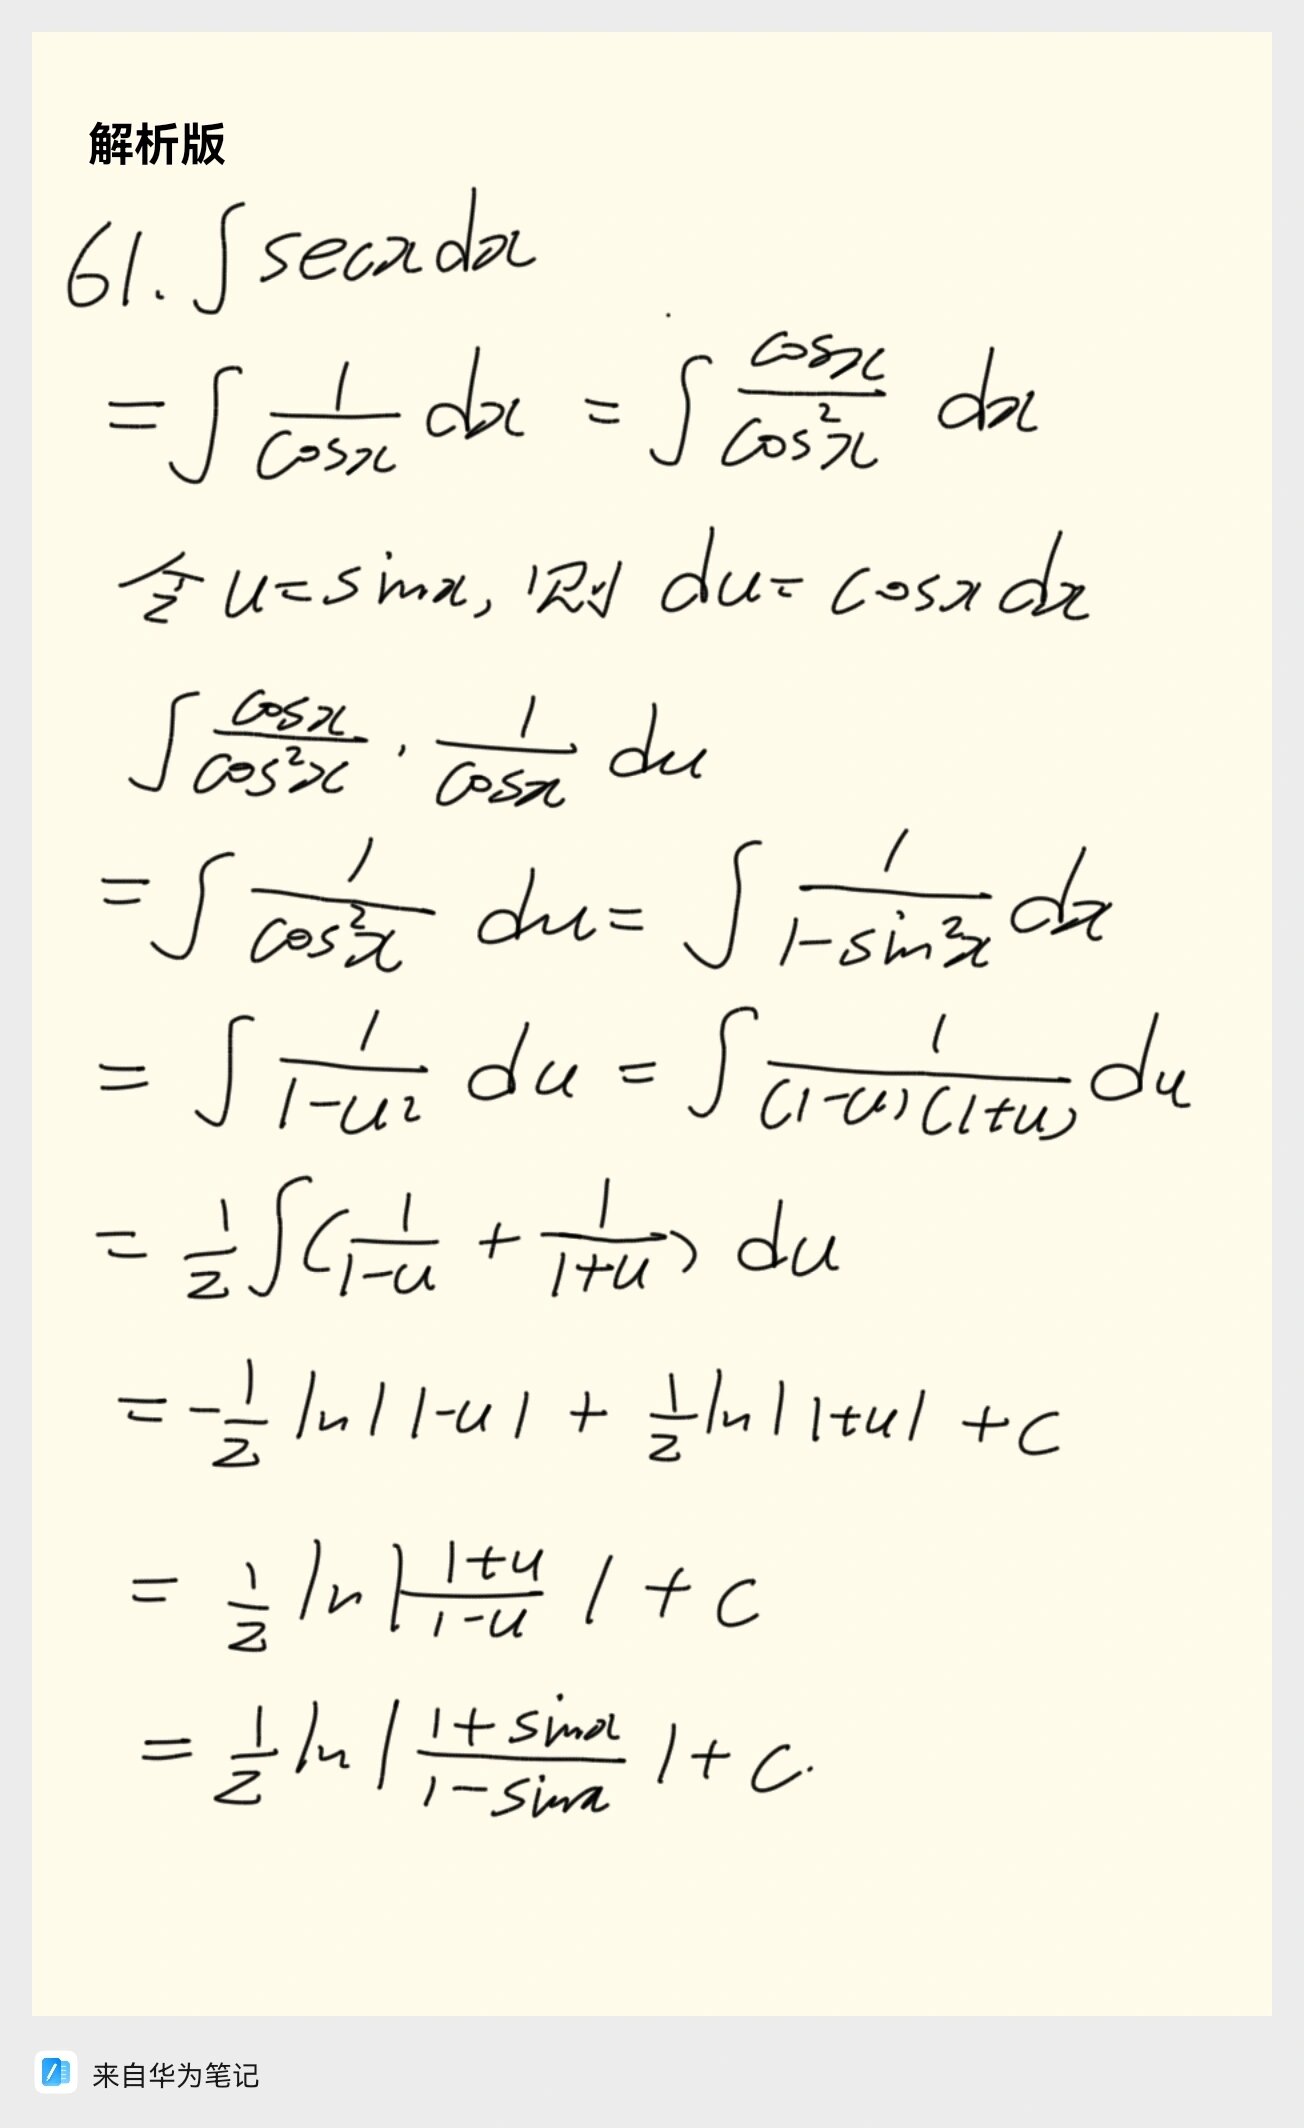 解析版
61. ∫ secx dx
= ∫ 1/cosx dx = ∫ cosx/cos²x dx
令 u = sinx, 则 du = cosx dx
∫ cosx/cos²x · 1/cosx du
= ∫ 1/cos²x du = ∫ 1/(1-sin²x) dx
= ∫ 1/(1-u²) du = ∫ 1/((1-u)(1+u)) du
= 1/2 ∫ (1/(1-u) + 1/(1+u)) du
= -1/2 ln|1-u| + 1/2 ln|1+u| + c
= 1/2 ln|(1+u)/(1-u)| + c
= 1/2 ln|(1+sinx)/(1-sinx)| + c.
来自华为笔记